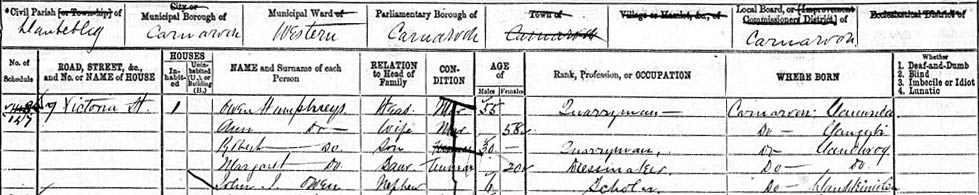 *Civil Parish [or Township] of City or Municipal Borough of Municipal Ward of Parliamentary Borough of Town of Village or Hamlet, &c., of Local Board, or [Improvement Commissioners District] of Ecclesiastical District of
Llanbeblig Carnarvon Western Carnarvon Carnarvon Carnarvon
No. of Schedule ROAD, STREET, &c., and No. or NAME of HOUSE HOUSES Inhabited Uninhabited (U.), or Building (B.) NAME and Surname of each Person RELATION to Head of Family CONDITION AGE of Males Females Rank, Profession, or OCCUPATION WHERE BORN Whether 1. Deaf-and-Dumb 2. Blind 3. Imbecile or Idiot 4. Lunatic
7 Victoria St. 1 Owen Humphreys Head Mar 55 Quarryman Carnarvon
Ann Do Wife Mar 58 Do
Robert Do Son 30 Quarryman Do
Margaret Do Daur Unmar 20 Dressmaker Do Do
John Owen Nephew Scholar Do